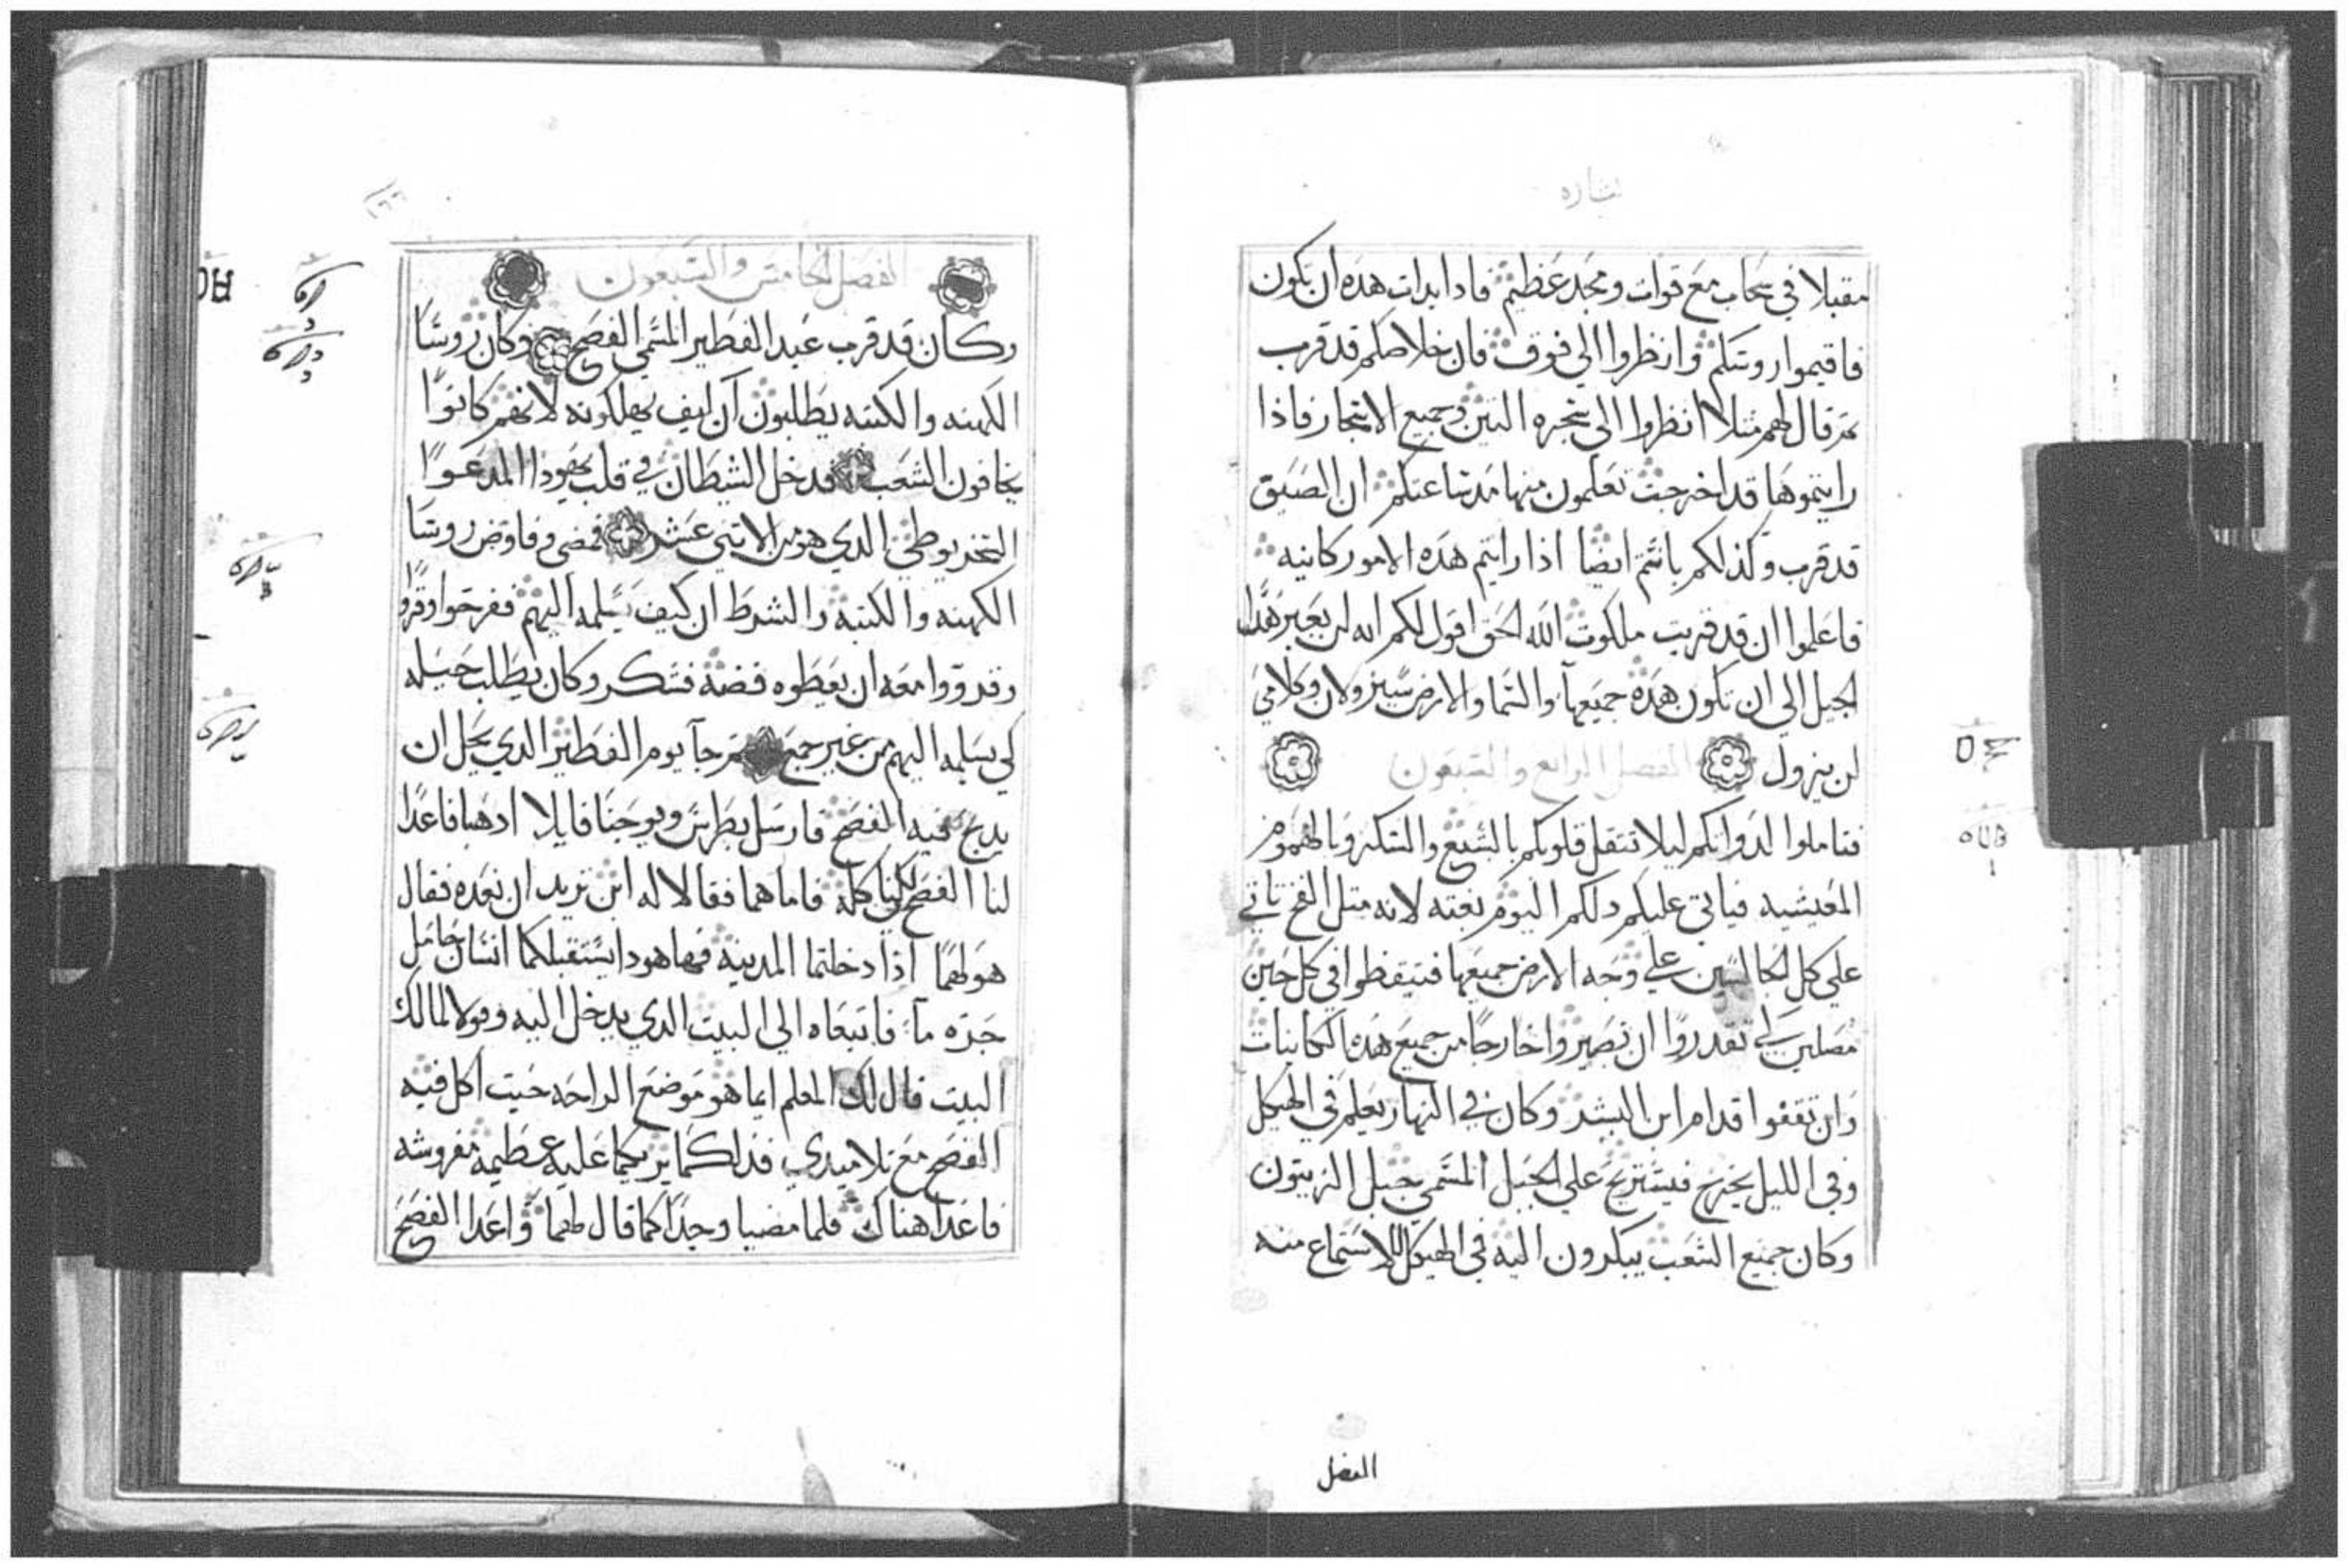 بشاره
مقبلا في سحاب مع قوات ومجد عظيم فادا بدات هده ان تكون
فاقيموا روسكم وانظروا الي فوق فان خلاصكم قد قرب
تم قال لهم مثلا انظروا الي شجره التين وجميع الاشجار فاذا
رايتموها قد اخرجت تعلمون منها مد ساعتكم ان الصيق
قد قرب وكذلكم يا انتم ايضا اذا رايتم هده الامور كاينه
فاعلموا ان قد قربت ملكوت الله الحق اقول لكم انه لن يعبر هدا
الجيل الي ان تكون هده جميعها والسما والارض سيزولان وكلامي
لن يزول الفصل الرابع والسبعون
فتاملوا لدواتكم ليلا تتقل قلوبكم بالشبع والسكر وبالهموم
المعيشيه فياتي عليكم دلكم اليوم بغته لانه متل الفخ ياتي
علي كل الجالسين علي وجه الارض جميعها فتيقظوا في كل حين
مصلين لكي تقدروا ان تصيروا خارجا من جميع هده الكاينات
وان تقفوا قدام ابن البشر وكان في النهار يعلم في الهيكل
وفي الليل يخرج فيستريح علي الجبل المسمي جبل الزيتون
وكان جميع الشعب يبكرون اليه في الهيكل للاستماع منه
الفصل
الفصل الخامس والسبعون
وكان قد قرب عيد الفطير المسمي الفصح وكان روسا
الكهنه والكتبه يطلبون ان كيف يهلكونه لانهم كانوا
يخافون الشعب فدخل الشيطان في قلب يهودا المدعوا
السخريوطي الدي هو من الاتني عشر فمضي وفاوض روسا
الكهنه والكتبه والشرط ان كيف يسلمه اليهم ففرحوا وقروا
وقدووا معه ان يعطوه فضه فتشكر وكان يطلب حيله
كي يسلمه اليهم من غير جمع تم جا يوم الفطير الدي يحل ان
يدبح فيه الفصح فارسل بطرس ويوحنا قايلا ادهبا فاعدا
لنا الفصح لكينا كله فاما هما فقالا له اين تريد ان نعده فقال
هو لهما اذا دخلتما المدينه فها هودا يستقبلكما انسان حامل
جره ما فاتبعاه الي البيت الدي يدخل اليه وقولا لمالك
البيت قال لك المعلم ايما هو موضع الراحه حيت اكل فيه
الفصح مع تلاميدي فذلكما يريكما عليه عظيمه مفروشه
فاعدا هناك فلما مضيا وجدا كما قال لهما واعدا الفصح